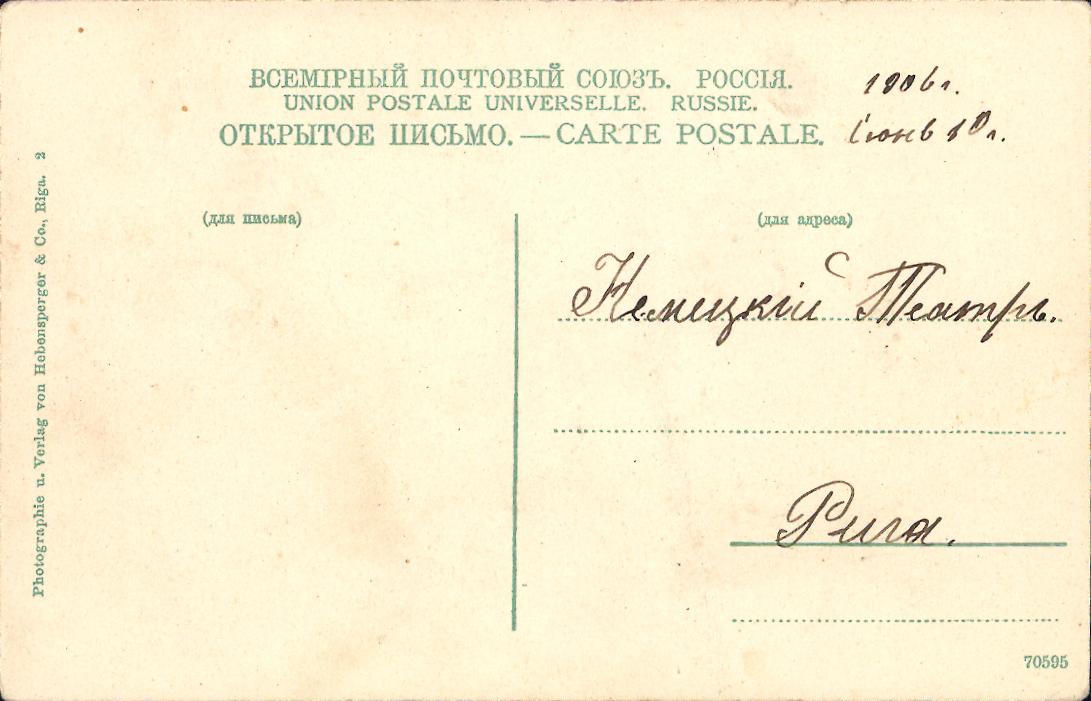 ВСЕМІРНЫЙ ПОЧТОВЫЙ СОЮЗЪ. РОССІЯ.
UNION POSTALE UNIVERSELLE. RUSSIE.
ОТКРЫТОЕ ПИСЬМО. — CARTE POSTALE.
1906 г.
Іюнь 10 д.
(для письма)
(для адреса)
Немецкій Театръ.
Рига.
Photographie u. Verlag von Hebensperger & Co., Riga. 2
70595